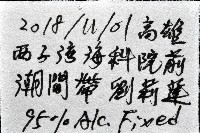 2018/11/01 高雄
西子湾海科院前
潮間帶 劉莉蓮
95% Alc. Fixed